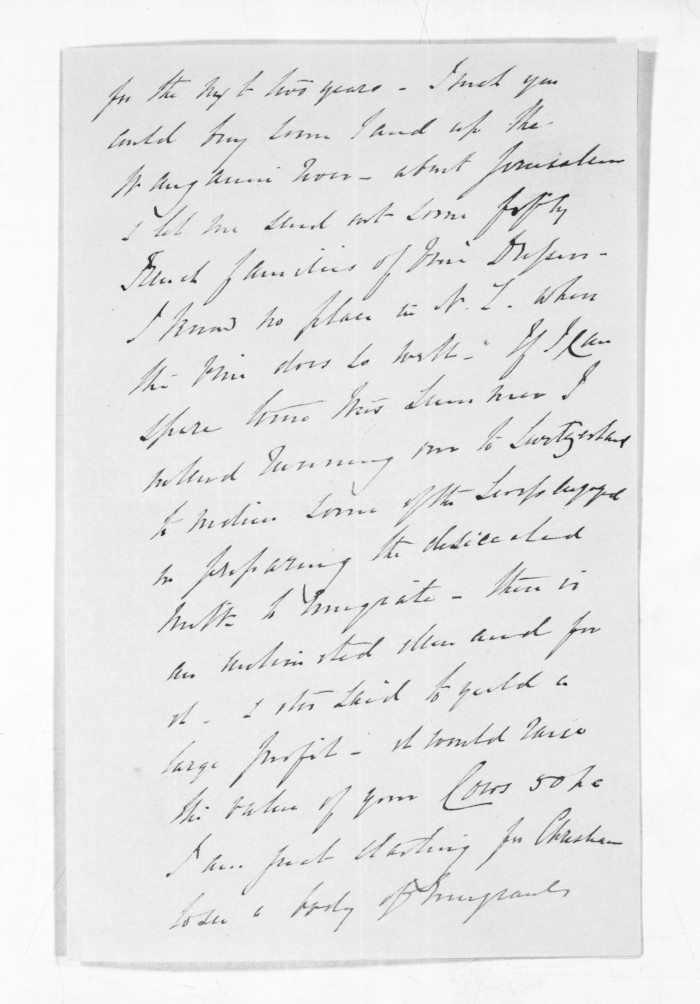 for the next two years - I wish you
could buy some land up the
Wanganui River - about Jerusalem
& let me send out some fifty
French families of Vine Dressers -
I know no place in N.Z. where
the Vine does so well - If I can
spare time this summer I
intend running over to Switzerland
to induce some of the Swiss engaged
in preparing the desiccated
milk to Emigrate - there is
an unlimited demand for
it - & it is said to yield a
large profit - it would raise
the value of your Cows 50 pc
I am just starting for
to see a body of Emigrants